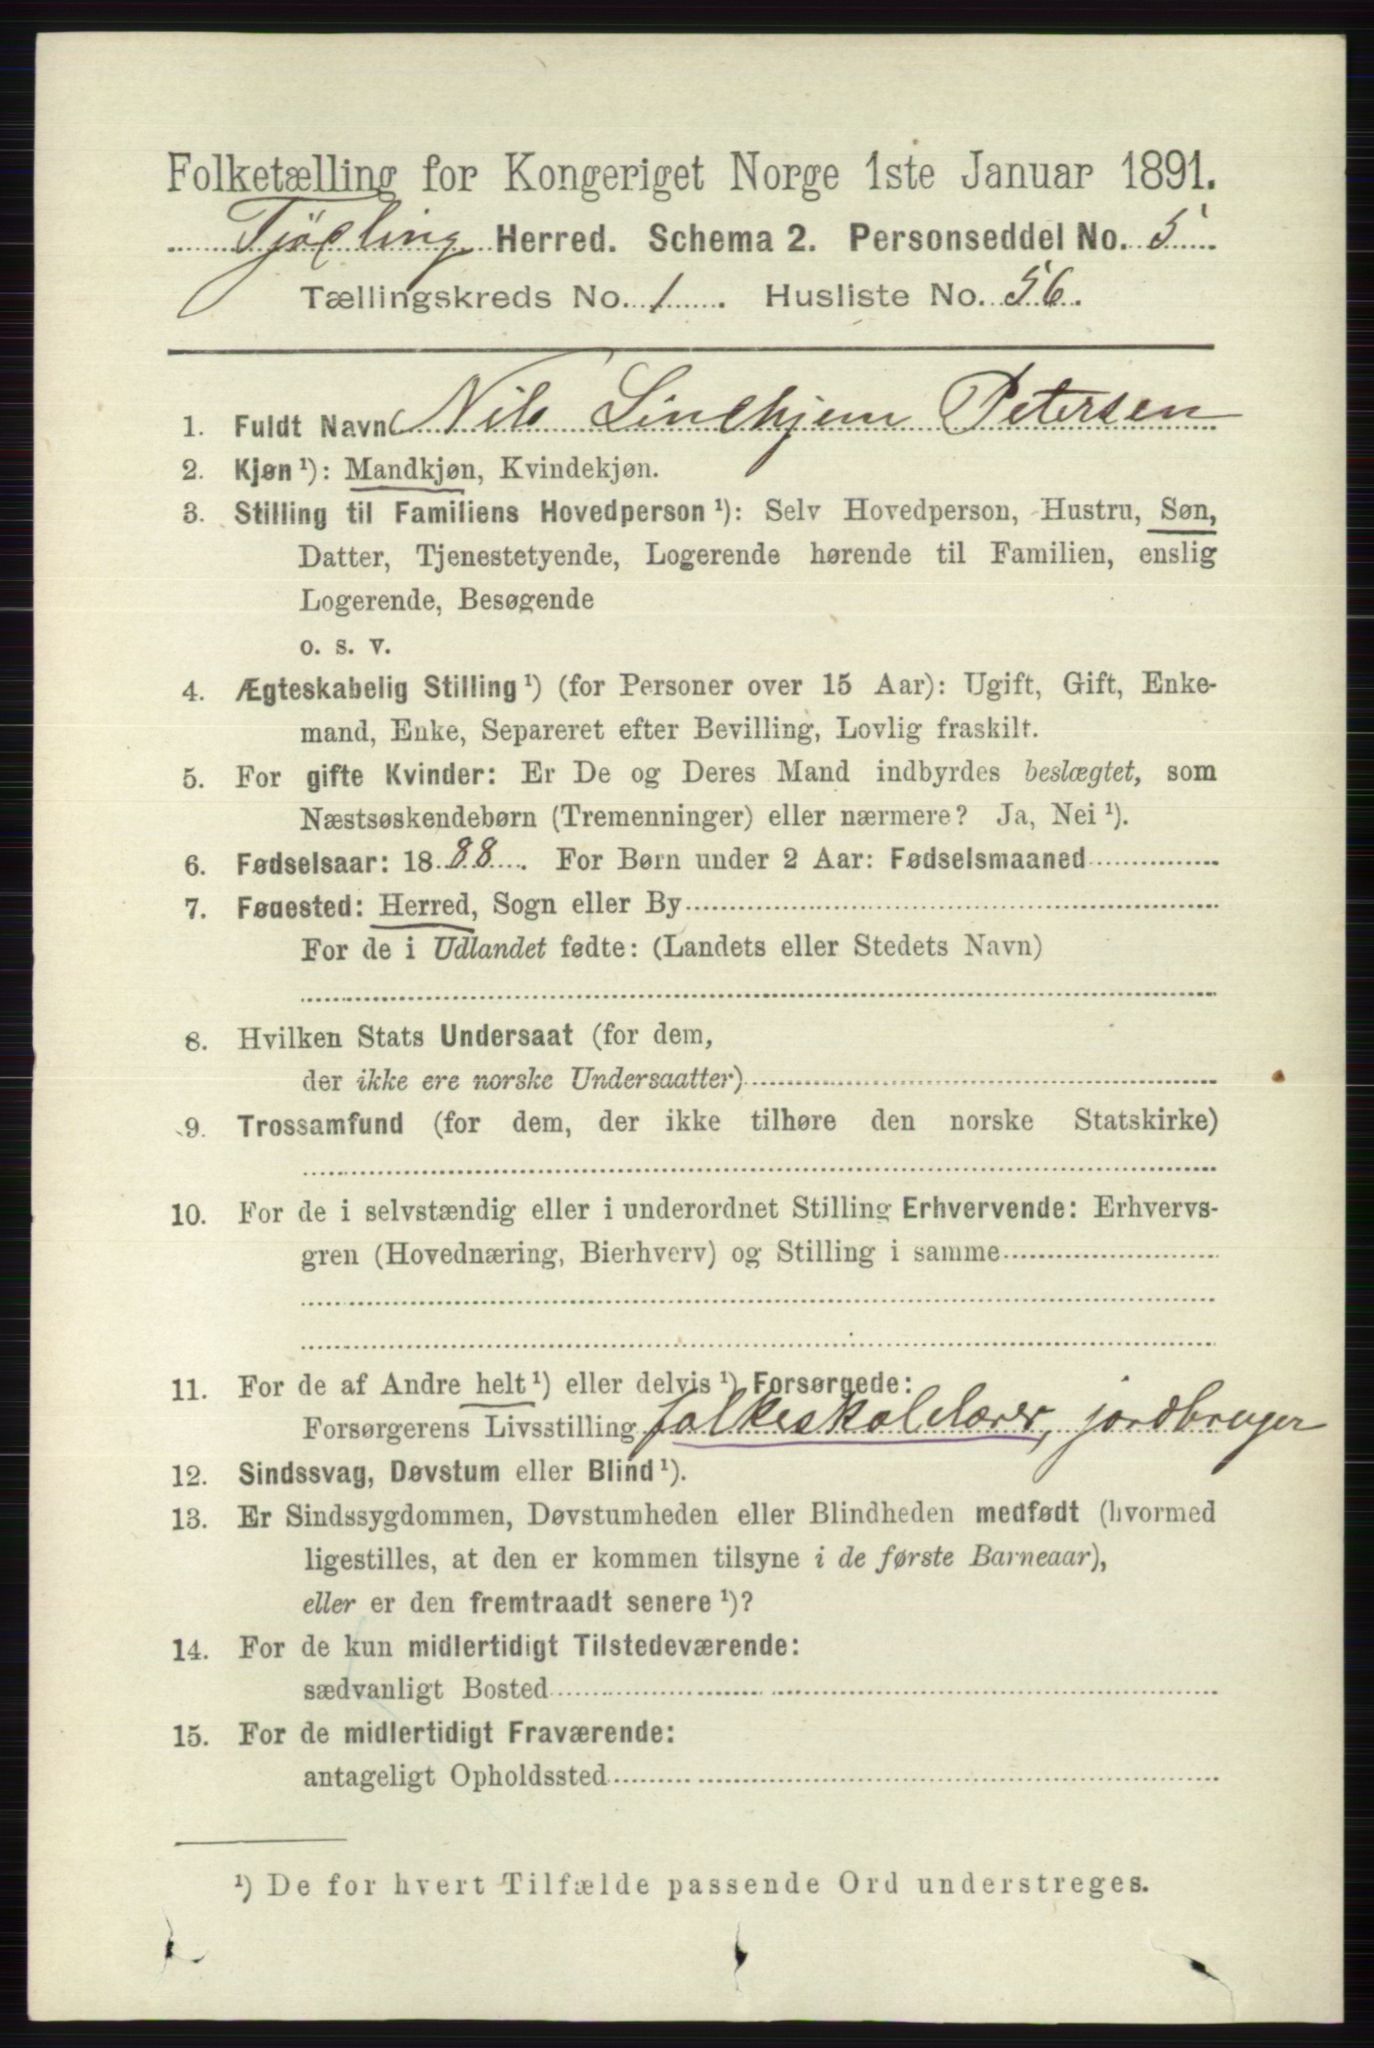 Folketælling for Kongeriget Norge 1ste Januar 1891.
Tjøling Herred. Schema 2. Personseddel No. 5
Tællingskreds No. 1. Husliste No. 56.
1. Fuldt Navn Nils Lindhjem Petersen
2. Kjøn ¹): Mandkjøn, Kvindekjøn.
3. Stilling til Familiens Hovedperson ¹): Selv Hovedperson, Hustru, Søn,
Datter, Tjenestetyende, Logerende hørende til Familien, enslig
Logerende, Besøgende
o. s. v.
4. Ægteskabelig Stilling ¹) (for Personer over 15 Aar): Ugift, Gift, Enke-
mand, Enke, Separeret efter Bevilling, Lovlig fraskilt.
5. For gifte Kvinder: Er De og Deres Mand indbyrdes beslægtet, som
Næstsøskendebørn (Tremenninger) eller nærmere? Ja, Nei ¹).
6. Fødselsaar: 1888. For Børn under 2 Aar: Fødselsmaaned
7. Fødested: Herred, Sogn eller By
For de i Udlandet fødte: (Landets eller Stedets Navn)
8. Hvilken Stats Undersaat (for dem,
der ikke ere norske Undersaatter)
9. Trossamfund (for dem, der ikke tilhøre den norske Statskirke)
10. For de i selvstændig eller i underordnet Stilling Erhvervende: Erhvervs-
gren (Hovednæring, Bierhverv) og Stilling i samme
11. For de af Andre helt ¹) eller delvis ¹) Forsørgede:
Forsørgerens Livsstilling folkeskolelærer, jordbruger
12. Sindssvag, Døvstum eller Blind ¹).
13. Er Sindssygdommen, Døvstumheden eller Blindheden medfødt (hvormed
ligestilles, at den er kommen tilsyne i de første Barneaar),
eller er den fremtraadt senere ¹)?
14. For de kun midlertidigt Tilstedeværende:
sædvanligt Bosted
15. For de midlertidigt Fraværende:
antageligt Opholdssted
¹) De for hvert Tilfælde passende Ord understreges.